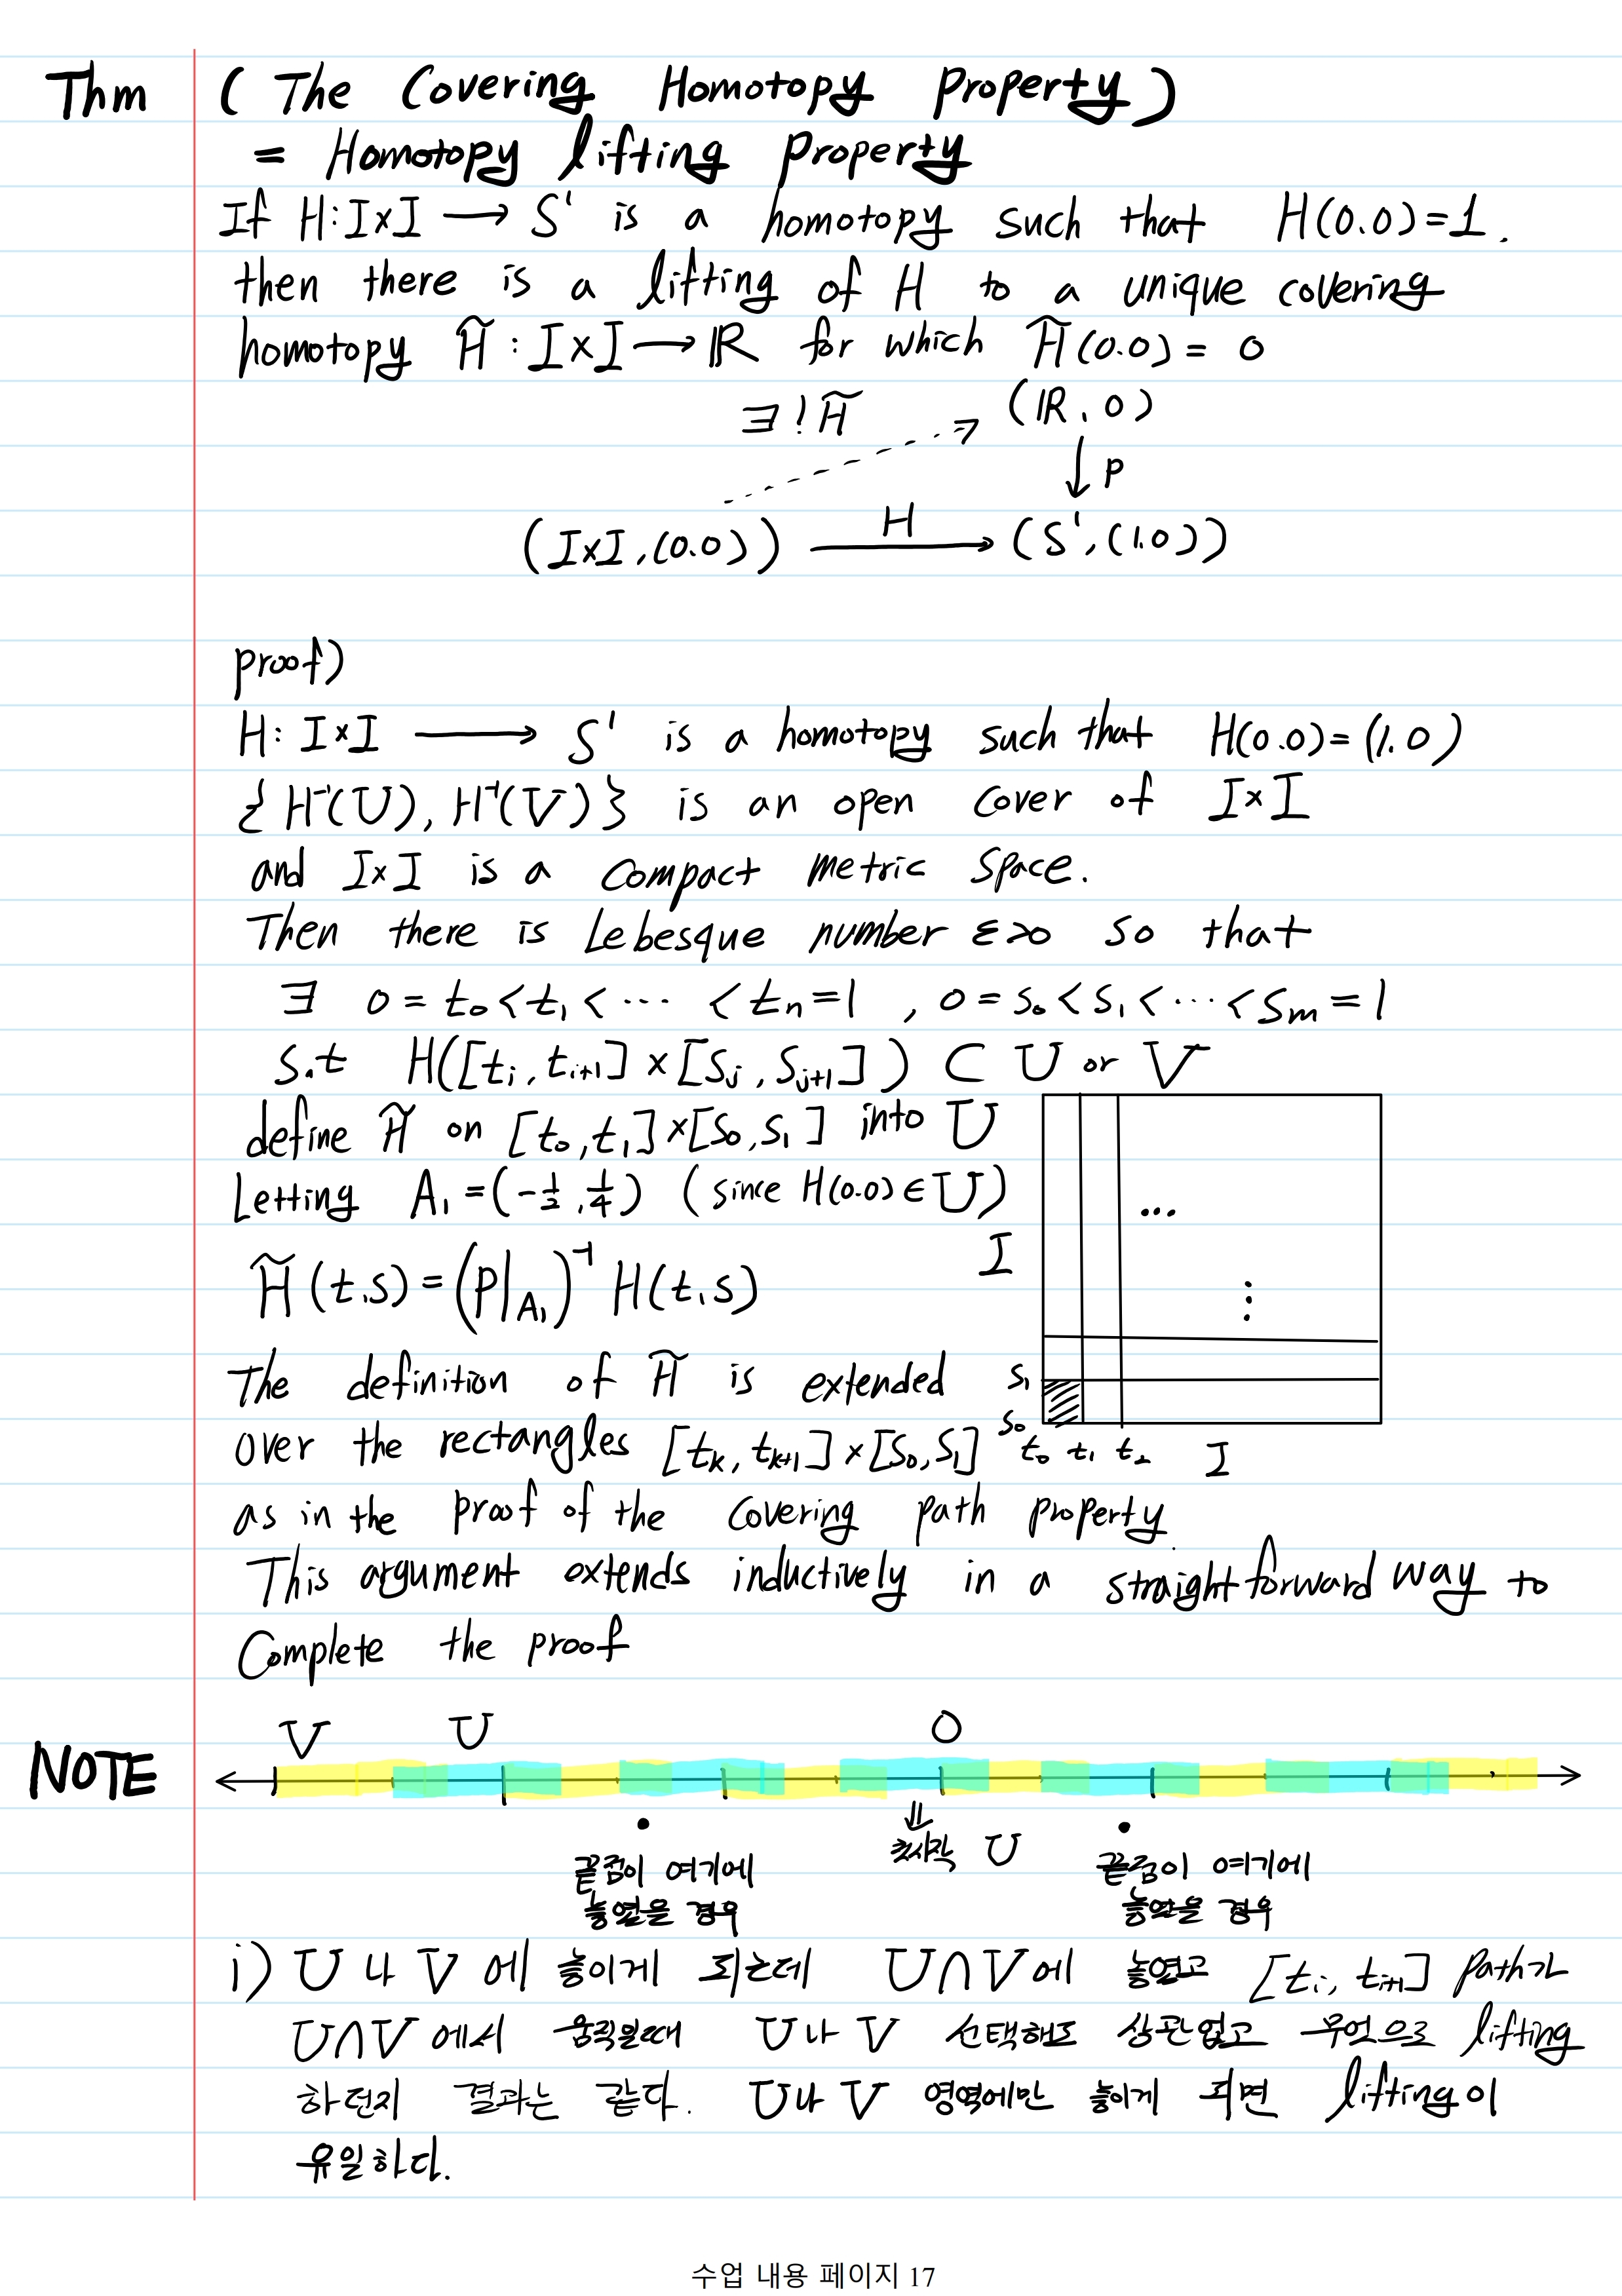 Thm ( The Covering Homotopy Property )
= Homotopy lifting property
If H : I×I ⟶ S¹ is a homotopy such that H(0.0)=1.
then there is a lifting of H to a unique covering
homotopy H̃ : I×I⟶ℝ for which H̃(0.0) = 0
∃! H̃ (ℝ, 0)
↓ p
(I×I, (0.0)) ⟶ H (S¹, (1.0))
proof)
H: I×I ⟶ S¹ is a homotopy such that H(0.0)=(1.0)
{ H⁻¹(U), H⁻¹(V) } is an open cover of I×I
and I×I is a compact metric space.
Then there is Lebesque number ε>0 so that
∃ 0 = t₀ < t₁ < ⋯ < tₙ = 1 , 0 = s₀ < s₁ < ⋯ < sₘ = 1
s.t H([tᵢ, tᵢ₊₁] × [sⱼ, sⱼ₊₁]) ⊂ U or V
define H̃ on [t₀, t₁]×[s₀, s₁] into U
Letting A₁ = (-1/2, 1/4) (since H(0.0) ∈ U)
H̃(t.s) = (p|A₁)⁻¹ H(t.s)
The definition of H̃ is extended
over the rectangles [tₖ, tₖ₊₁]×[s₀, s₁]
as in the proof of the covering path property.
This argument extends inductively in a straightforward way to
Complete the proof
I
⋯
⋮
s₁
s₀
t₀ t₁ t₂ I
NOTE V U 0
⇓
출사각 U
끝점이 여기에
놓였을 경우
끝점이 여기에
놓였을 경우
i) U 나 V 에 놓이게 되는데 U∩V에 놓였고 [tᵢ, tᵢ₊₁] path가
U∩V 에서 움직일때 U나 V 선택해도 상관없고 무엇으로 lifting
하던지 결과는 같다. U나 V 영역에만 놓이게 되면 lifting이
유일하다.
수업 내용 페이지 17